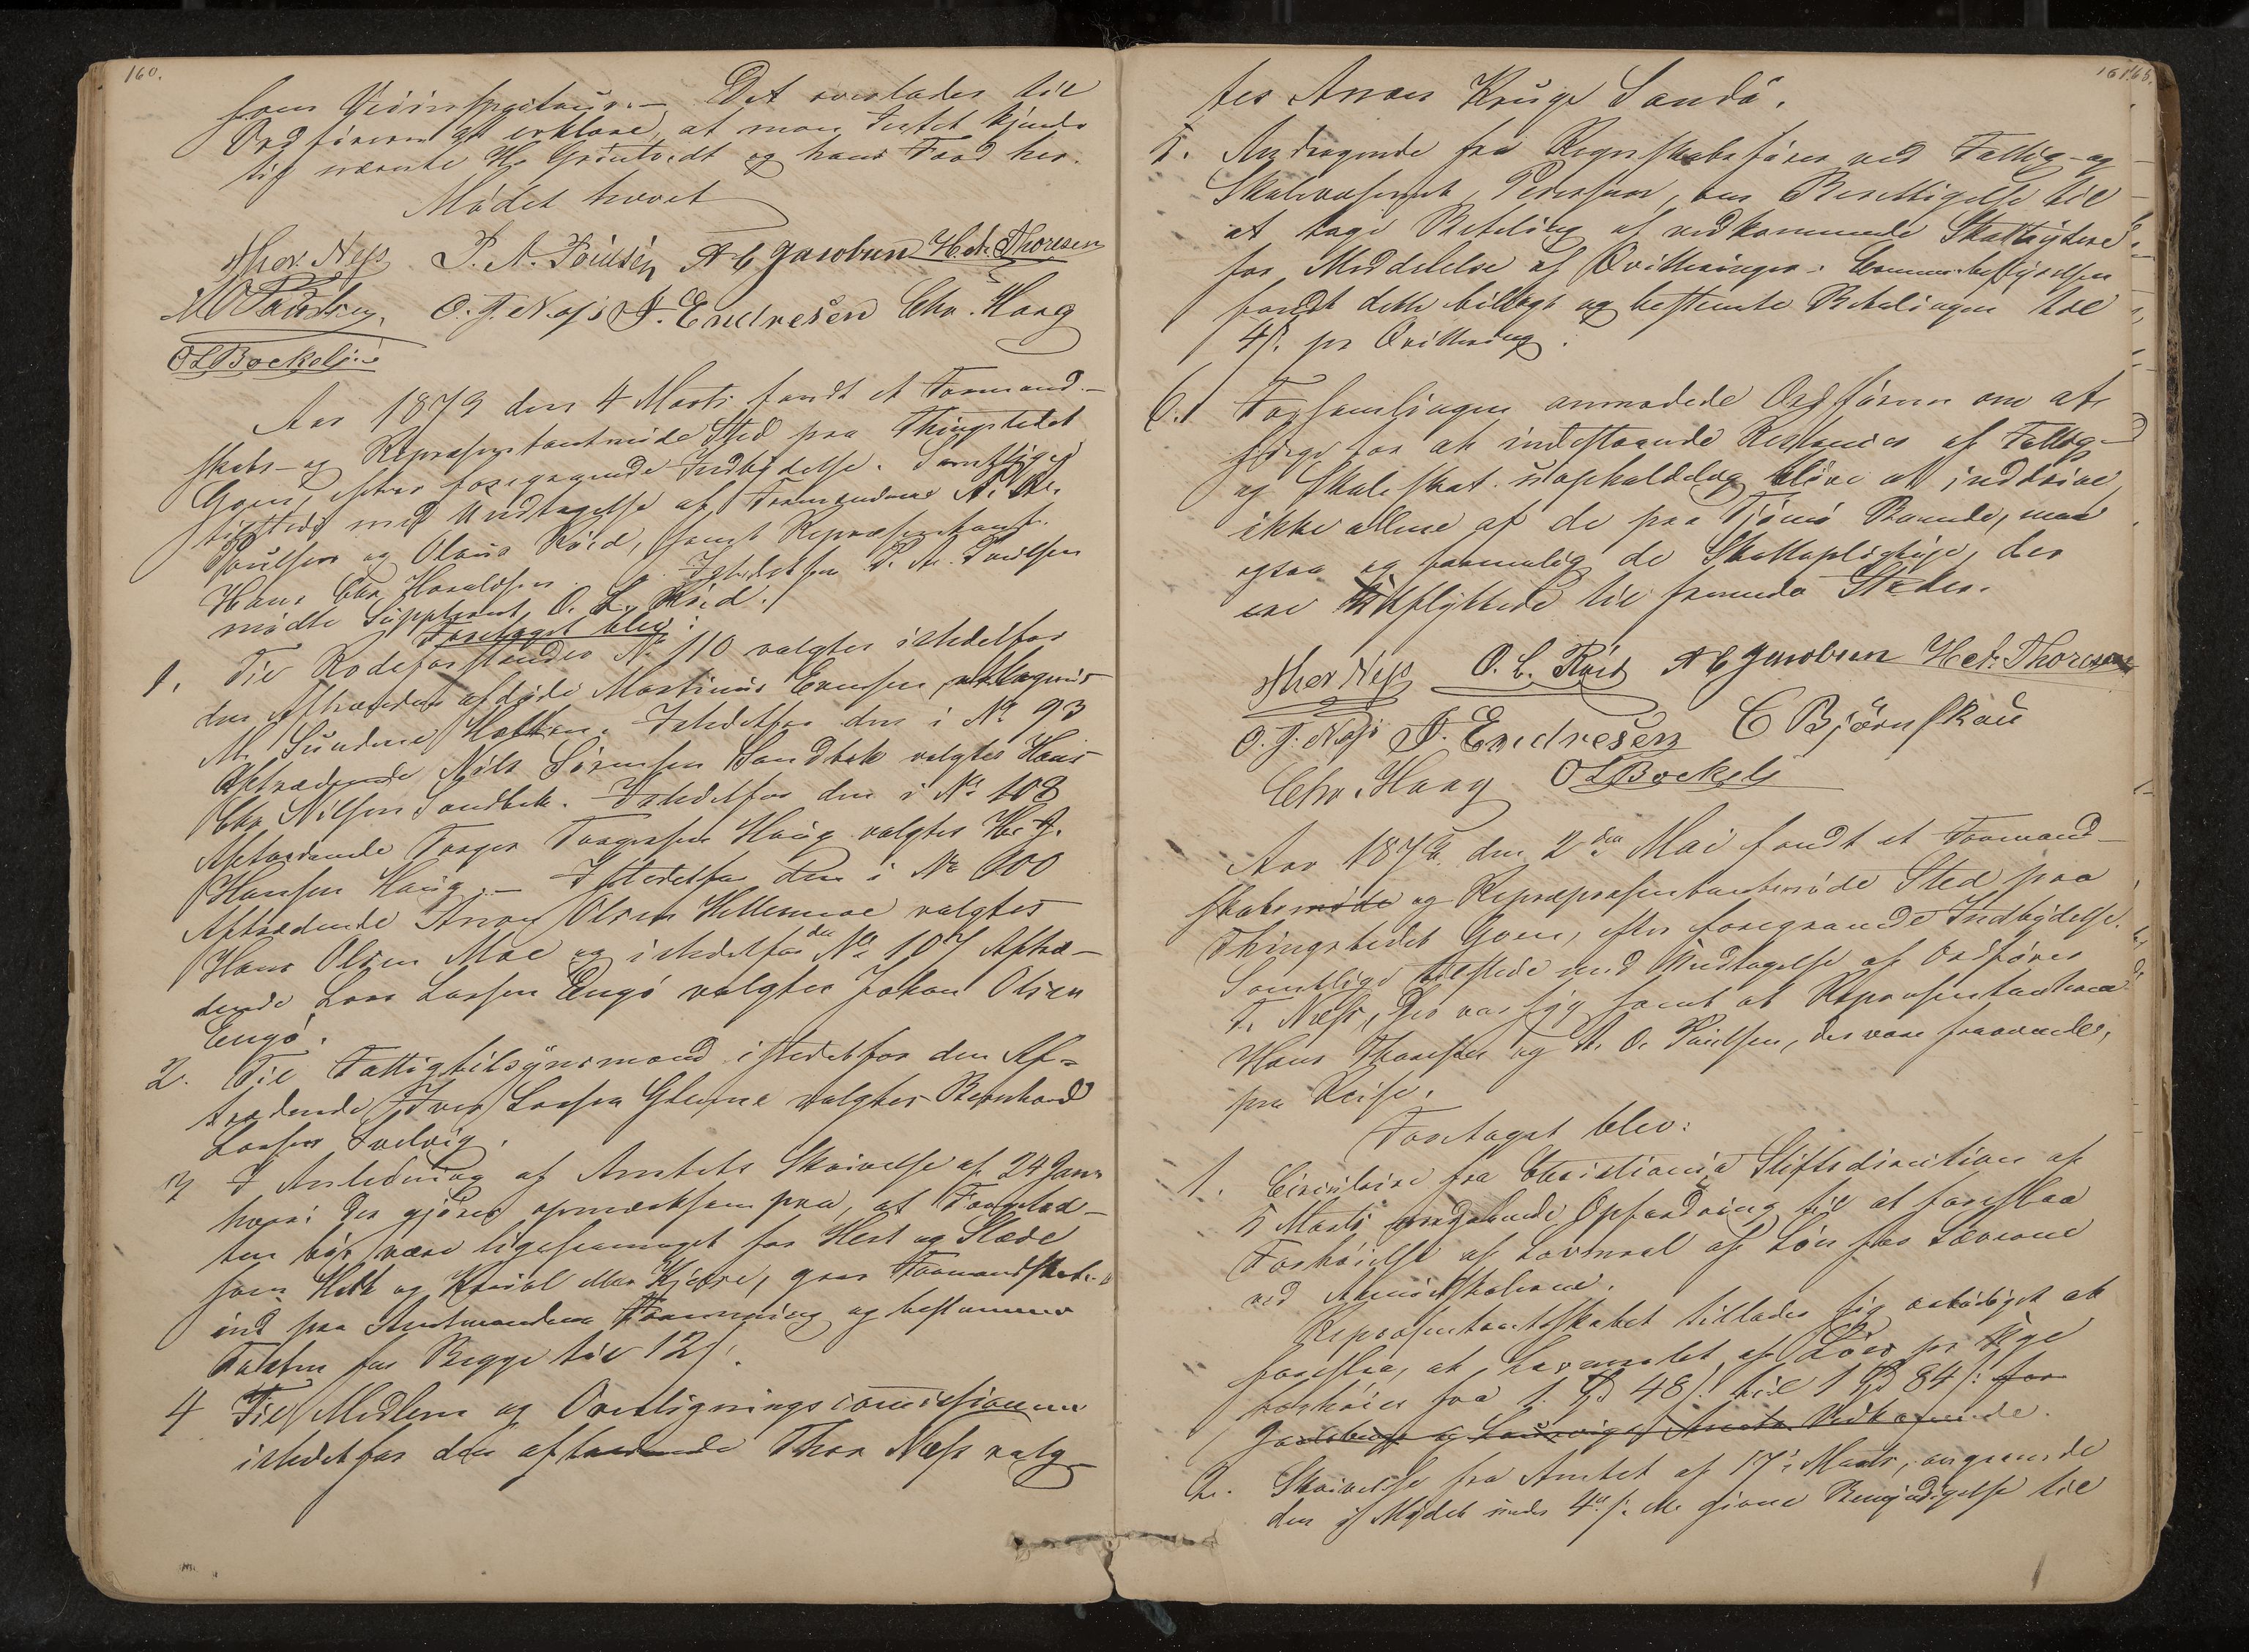 160.
som Veiinspecteur.- Det overlades til
Ordføreren at erklære, at man Intet kjender
til nævnte Hr Grintvedt og hans Færd her.
Mødet hævet
Thor. Næss P. A. Poulsen A C Jacobsen H. Chr. Thoresen
M Paulsen O. J. Næss F. Endresen Chr. Haag
O L Bockelj
Aar 1879 den 4 Marts fandt et Formand-
skabs- og Repræsentantmøde Sted paa Thingstedet
Goen, efter foregaaende Indbydelse. Samtlige
tilstede med Undtagelse af Formændene P. A.
Poulsen og Olaus Røed, samt Repræsentant
Hans Chr. Haraldsen. Istedetfor P. A. Poulsen
mødte Suppleant O. L. Røed.
Foretaget blev:
1. Til Rodeforstander No 110 valgtes istedetfor
den afdøde Martinus Evensen, Magnus
M. Sundene Holtan. Istedetfor den i No 93
Aftrædende Nils Sørensen Sandbek valgtes Hans
Chr Nilsen Sandbek. Istedetfor den i No 108
Aftrædende Torger Torgersen Haug valgtes H. J.
Hansen Haug.- Istedetfor den i No 100
Aftrædende Anders Olsen Hellemoe valgtes
Hans Olsen Moe og istedetfor den No 107 Aftræ-
dende Lars Larsen Engø valgtes Johan Olsen
Engø.
2. Til Fattigtilsynsmand istedetfor den Af-
trædende Iver Larsen Glenne valgtes Bernhard
Larsen Solvig.
3 I Anledning af Amtets Skrivelse af 24 Janr
hvori der gjøres opmærksom paa, at Taxten
bør være ligesaameget for Hest og Slæde
som Hest og Kariol eller Kjærre, gaar Formandskabet
ind paa Amtmandens Formening og bestemmer
Taxten for Begge til 12 s.
4 Til Medlem og Overligningscommissionen
istedetfor den aftrædende Thor Næss valg-
161
165.
tes Anders Kruge Sandø.
5. Andragende fra Regnskabsfører ved Fattig- og
Skolevæsenet, Pedersen, om Berettigelse til
at tage Betaling af vedkommende Skatteydere
for Meddelelse af Qvitteringer. Communebestyrelsen
fandt dette billigt og bestemte Betalingen til
4 s. pr Qvittering.
6. Forsamlingen anmodede Ordføreren om at
sørge for at indestaaende Restancer af Fattig-
og Skoleskat uopholdelig blive at inddrive,
ikke allene af de paa Tjømø Boende, men
ogsaa og fornemmelig de Skattepligtige, der
ere udflyttede til fremmede Steder.
Thor Næss O. L. Røed A C Jacobsen H Chr. Thoresen
O. J. Næss F. Endresen C Bjørnskau
Chr. Haag O L Bockelj
Aar 1879 den 2den Mai fandt et Formand-
skabsmøde og Repræpræsentantmøde Sted paa
Thingstedet Goen, efter foregaaende Indbydelse.
Samtlige tilstede med Undtagelse af Ordfører
T. Næss, der var syg samt at Repræsentanterne
Hans Thoresen og A. O. Paulsen, der vare fraværende,
paa Reise.
Foretaget blev:
1. Circulaire fra Christiania Stiftsdirection af
5 Marts angaaende Opfordring til at foreslaa
Forhøielse af Lovmaal af Løn for Lærerne
ved Almueskolerne.
Repræsentantskabet tillader sig ærbødigst at
foreslaa, at Lavmaalet af Løn pr Uge
forhøies fra 1 Spd 48 s. til 1 Spd 84 s. for
Jarlsberg og Laurvigs Amts Vedkommende.
2. Skrivelse fra Amtet af 17 Marts, angaaende
den af Mødet under 4de s. M. givne Bemyndigelse til